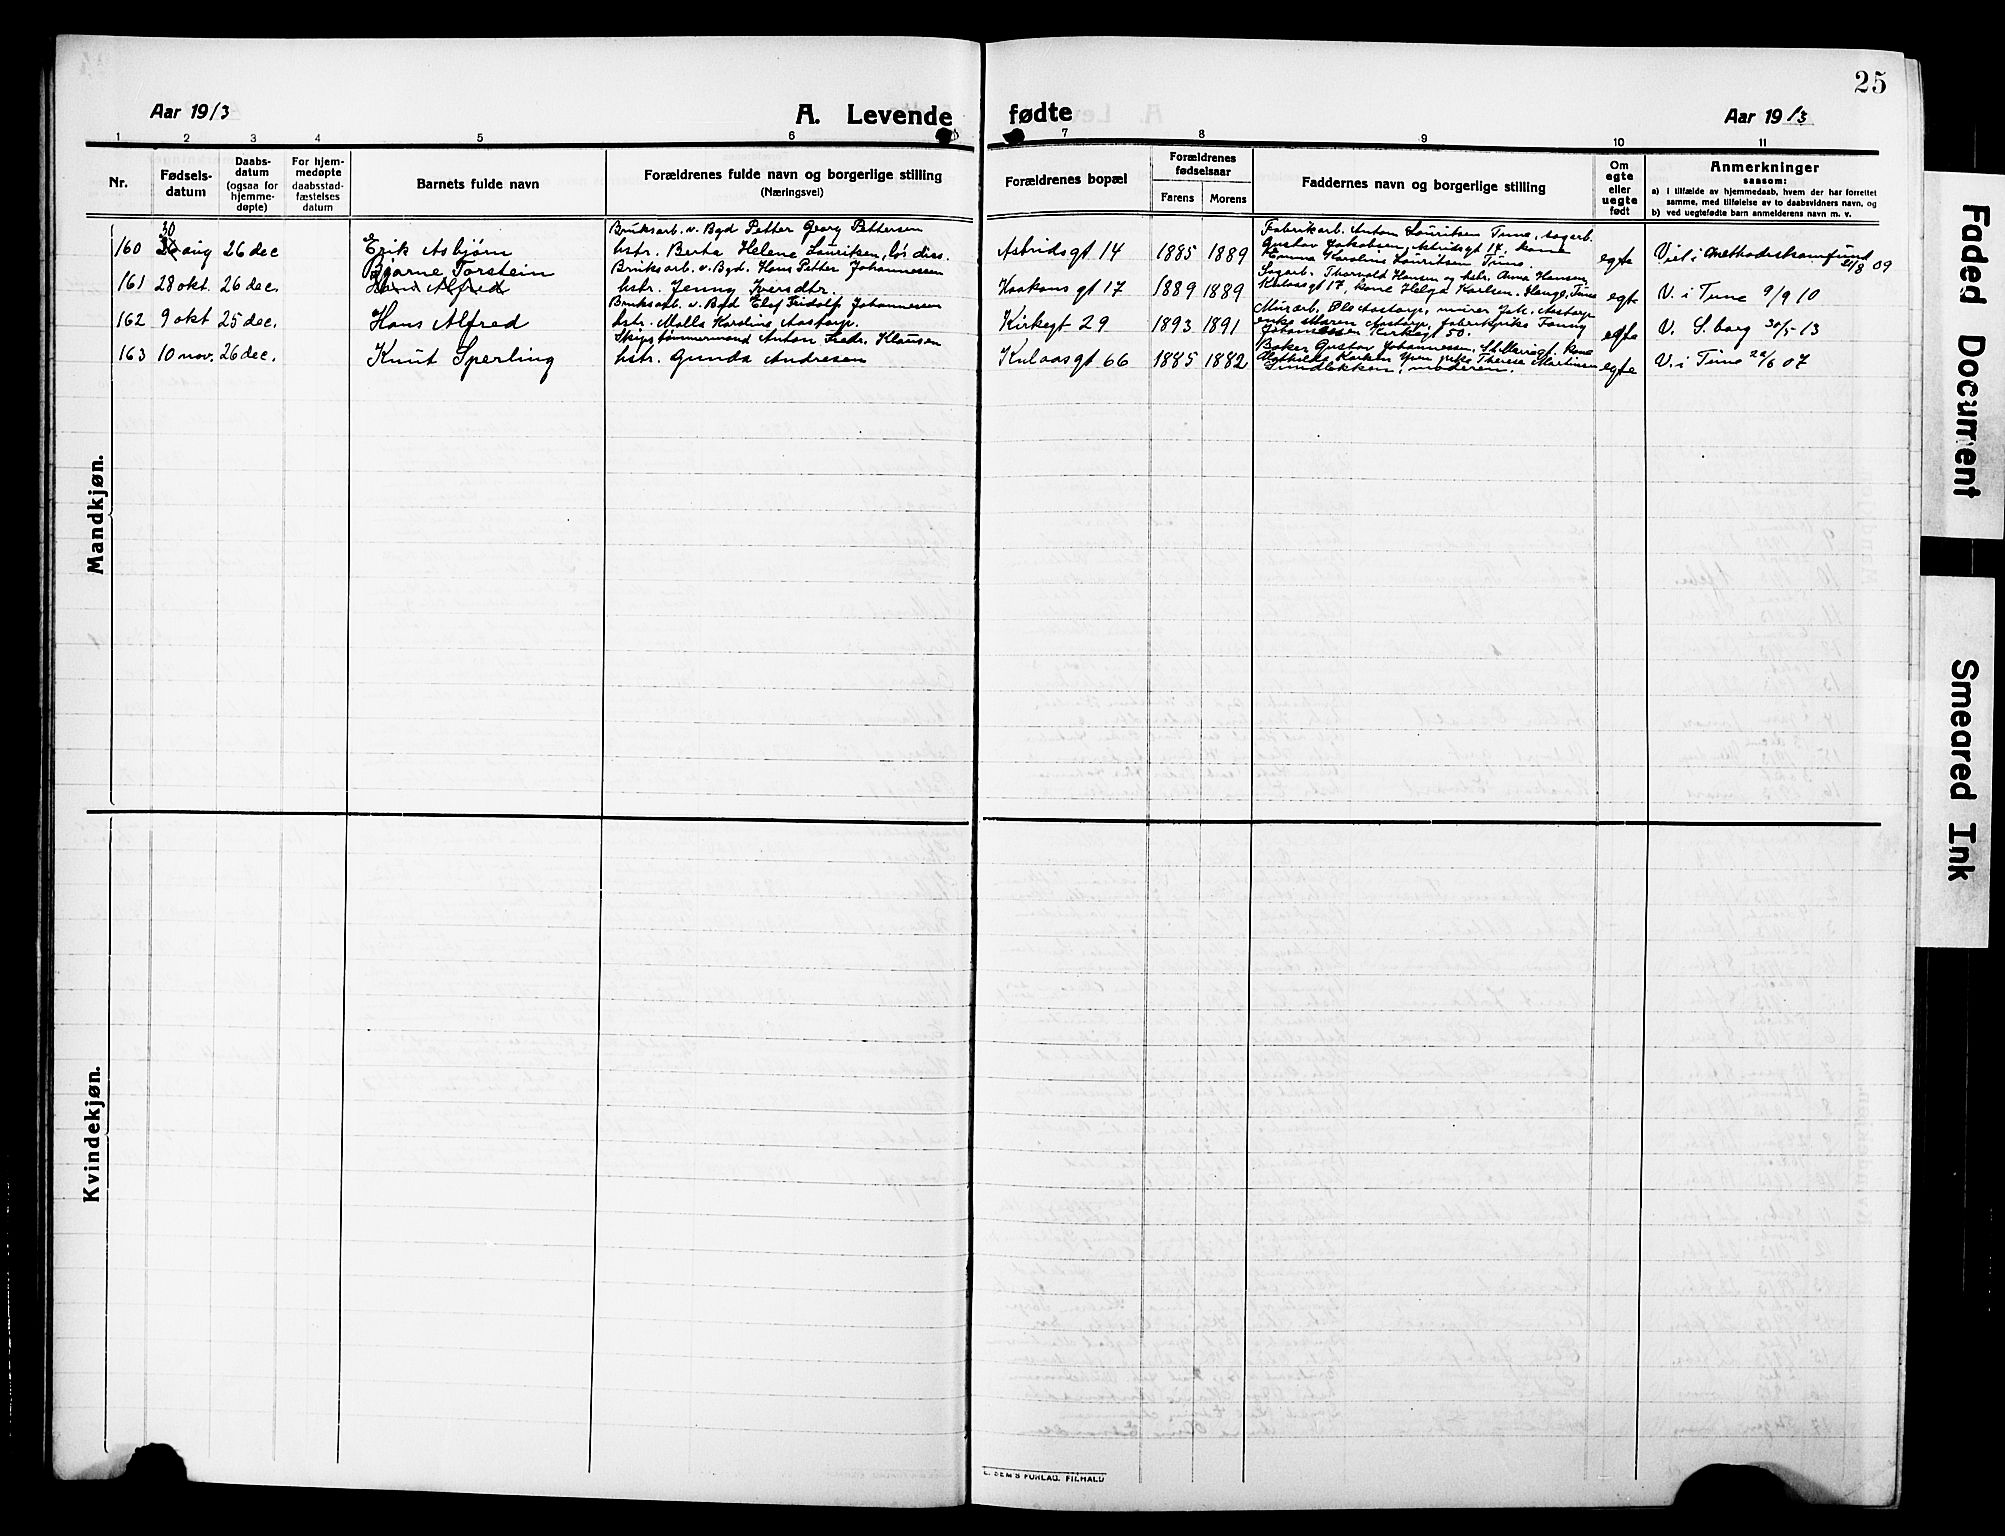 25
Aar 1913
A. Levende fødte
Aar 1913
1 2 3 4 5 6 7 8 9 10 11
Nr.
Fødsels-
datum
Daabs-
datum
(ogsaa for
hjemme-
døpte)
For hjem-
medøpte
daabsstad-
fæstelses
datum
Barnets fulde navn
Forældrenes fulde navn og borgerlige stilling
(Næringsvei)
Forældrenes bopæl
Forældrenes
fødselsaar
Farens Morens
Faddernes navn og borgerlige stilling
Om
egte
eller
uegte
født
Anmerkninger
saasom:
a) i tilfælde av hjemmedaab, hvem der har forrettet
samme, med tilføielse av to daabsvidners navn, og
b) ved uegtefødte barn anmelderens navn m. v.
Mandkjøn.
160 30 aug 26 dec Erik Asbjørn
Bruksarb. v. Bgd Petter Georg Pettersen
hstr. Berta Helene Lauritsen, diss.
Astridsgt 14 1885 1889
Fabrikarb. Anton Lauritsen Tune, sagarb.
Gustav Jakobsen, Astridsgt 17, kone
Emma Karoline Lauritsen Tune.
egte
Viet i Methodistsamfund 21/8 09
161 28 okt. 26 dec. Bjarne Torstein
Hans Alfred
Bruksarb. v. Bgd. Hans Petter Johannessen
hstr. Jenny Iversdtr.
Haakons gt 17 1889 1889
Sagarb. Thorvald Hansen og hstr. Anna Hansen,
Kulaasgt 17, kone Helga Karlsen, Hauge, Tune
egte
V. i Tune 9/9 10
162 9 okt 25 dec. Hans Alfred
Bruksarb. v. Bgd Elof Fridolf Johannessen
hstr. Molla Karoline Aastorp.
Kirkegt 29 1893 1891
Murarb. Ole Aastorp, murer Joh. Aastorp
enke Maren Aastorp, fabrikpike Fanny
Johannessen Kirkegt 50.
egte
V. S. borg 30/5 - 13
163 10 nov. 26 dec. Knut Sperling
Skipstømmermand Anton Fredr. Klausen
hstr. Gunda Andresen
Kulaasgt 66 1885 1882
Baker Gustav Johannessen, St. Mariegt. kone
Mathilde Karlsen pike Therese Martinsen
moderen.
egte
V. i Tune 22/6 07
Kvindekjøn.
E. SEM'S FORLAG. FR.HALD
Faded Document
Smeared Ink